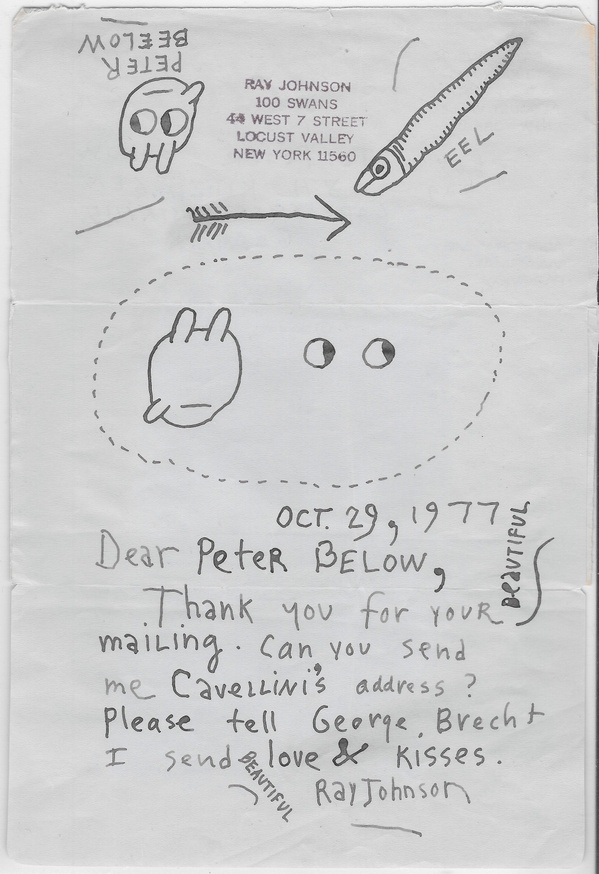 PETER
BEELOW
RAY JOHNSON
100 SWANS
44 WEST 7 STREET
LOCUST VALLEY
NEW YORK 11560
EEL
OCT. 29, 1977
Dear Peter BELOW,
BEAUTIFUL
Thank you for your
mailing. Can you send
me Cavellini's address?
Please tell George Brecht
I send love & kisses.
BEAUTIFUL
Ray Johnson